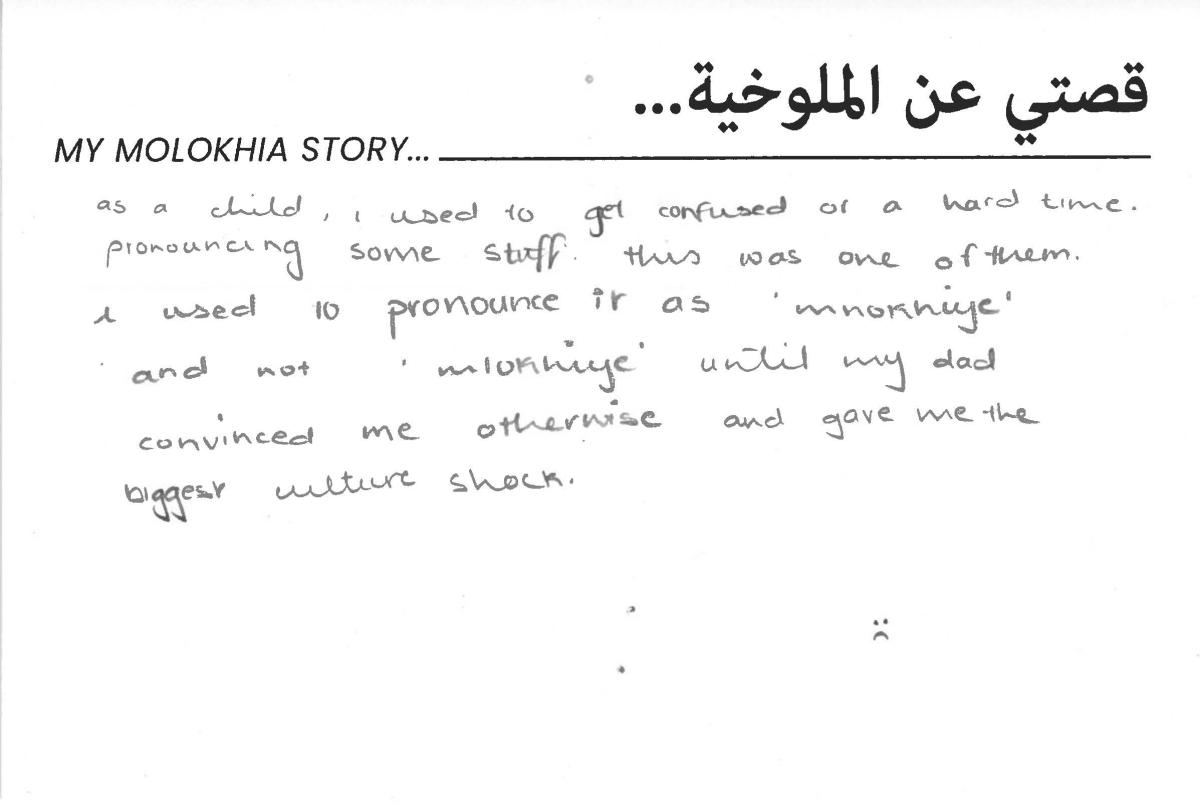 قصتي عن الملوخية...
MY MOLOKHIA STORY...
as a child, i used to get confused or a hard time.
pronouncing some stuff. this was one of them.
i used to pronounce it as 'mnokhiye'
and not 'mlokhiye' until my dad
convinced me otherwise and gave me the
biggest culture shock.